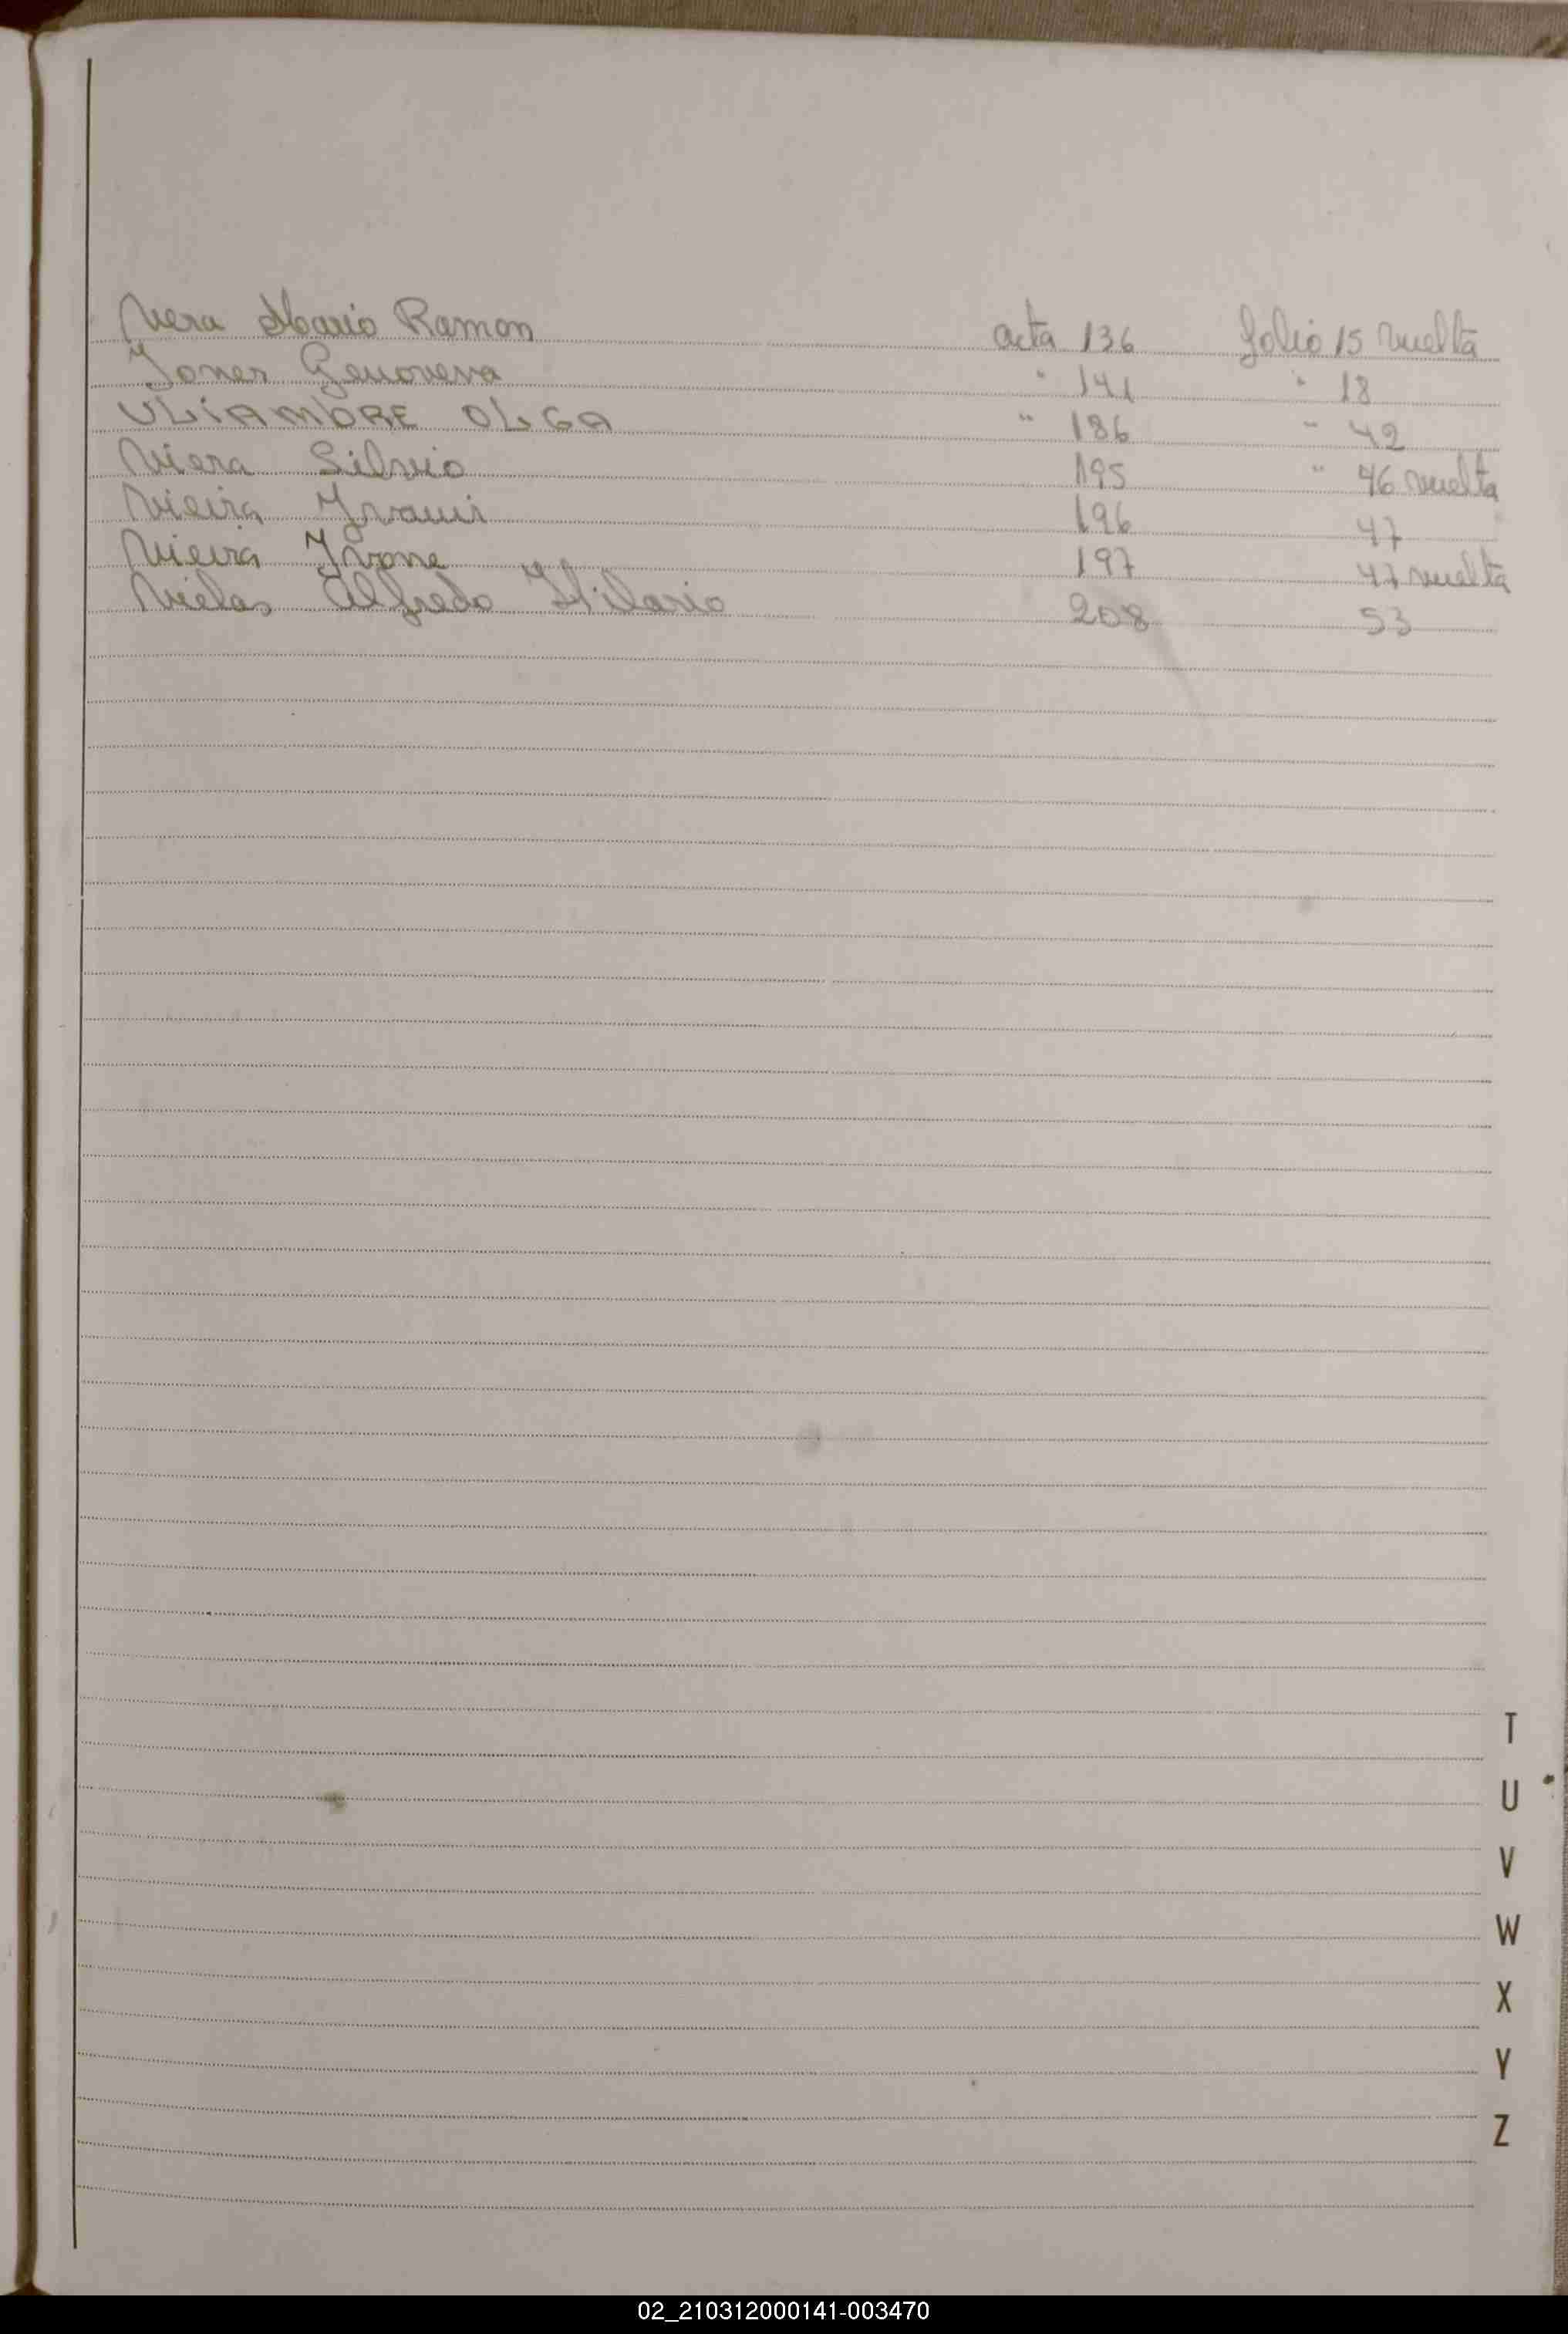 Vera Mario Ramon acta 136 folio 15 vuelta
Genoveva " 141 " 18
ULIAMBRE OLGA " 186 " 42
Viera Silvio 195 " 46 vuelta
Vieira 196 47
Vieira Ivone 197 47 vuelta
Vielas Alfredo Hilario 208 53
T
U
V
W
X
Y
Z
02_210312000141-003470